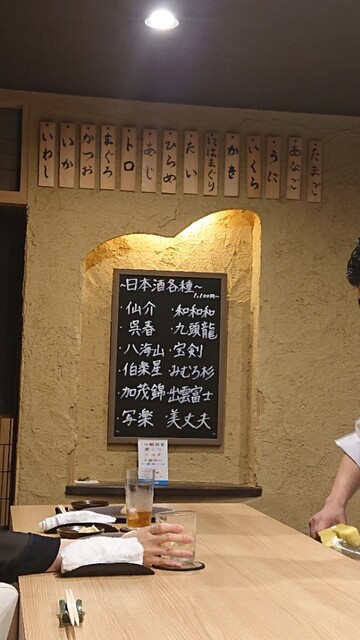 たまご
あなご
うに
いくら
かき
にはまぐり
たい
ひらめ
あじ
トロ
まぐろ
かつお
いか
いわし
~日本酒各種~
1,100円~
・仙介 ・和和和
・呉春 ・九頭龍
・八海山 ・宝剣
・伯楽星 ・みむろ杉
・加茂錦 ・出雲富士
・写楽 ・美丈夫